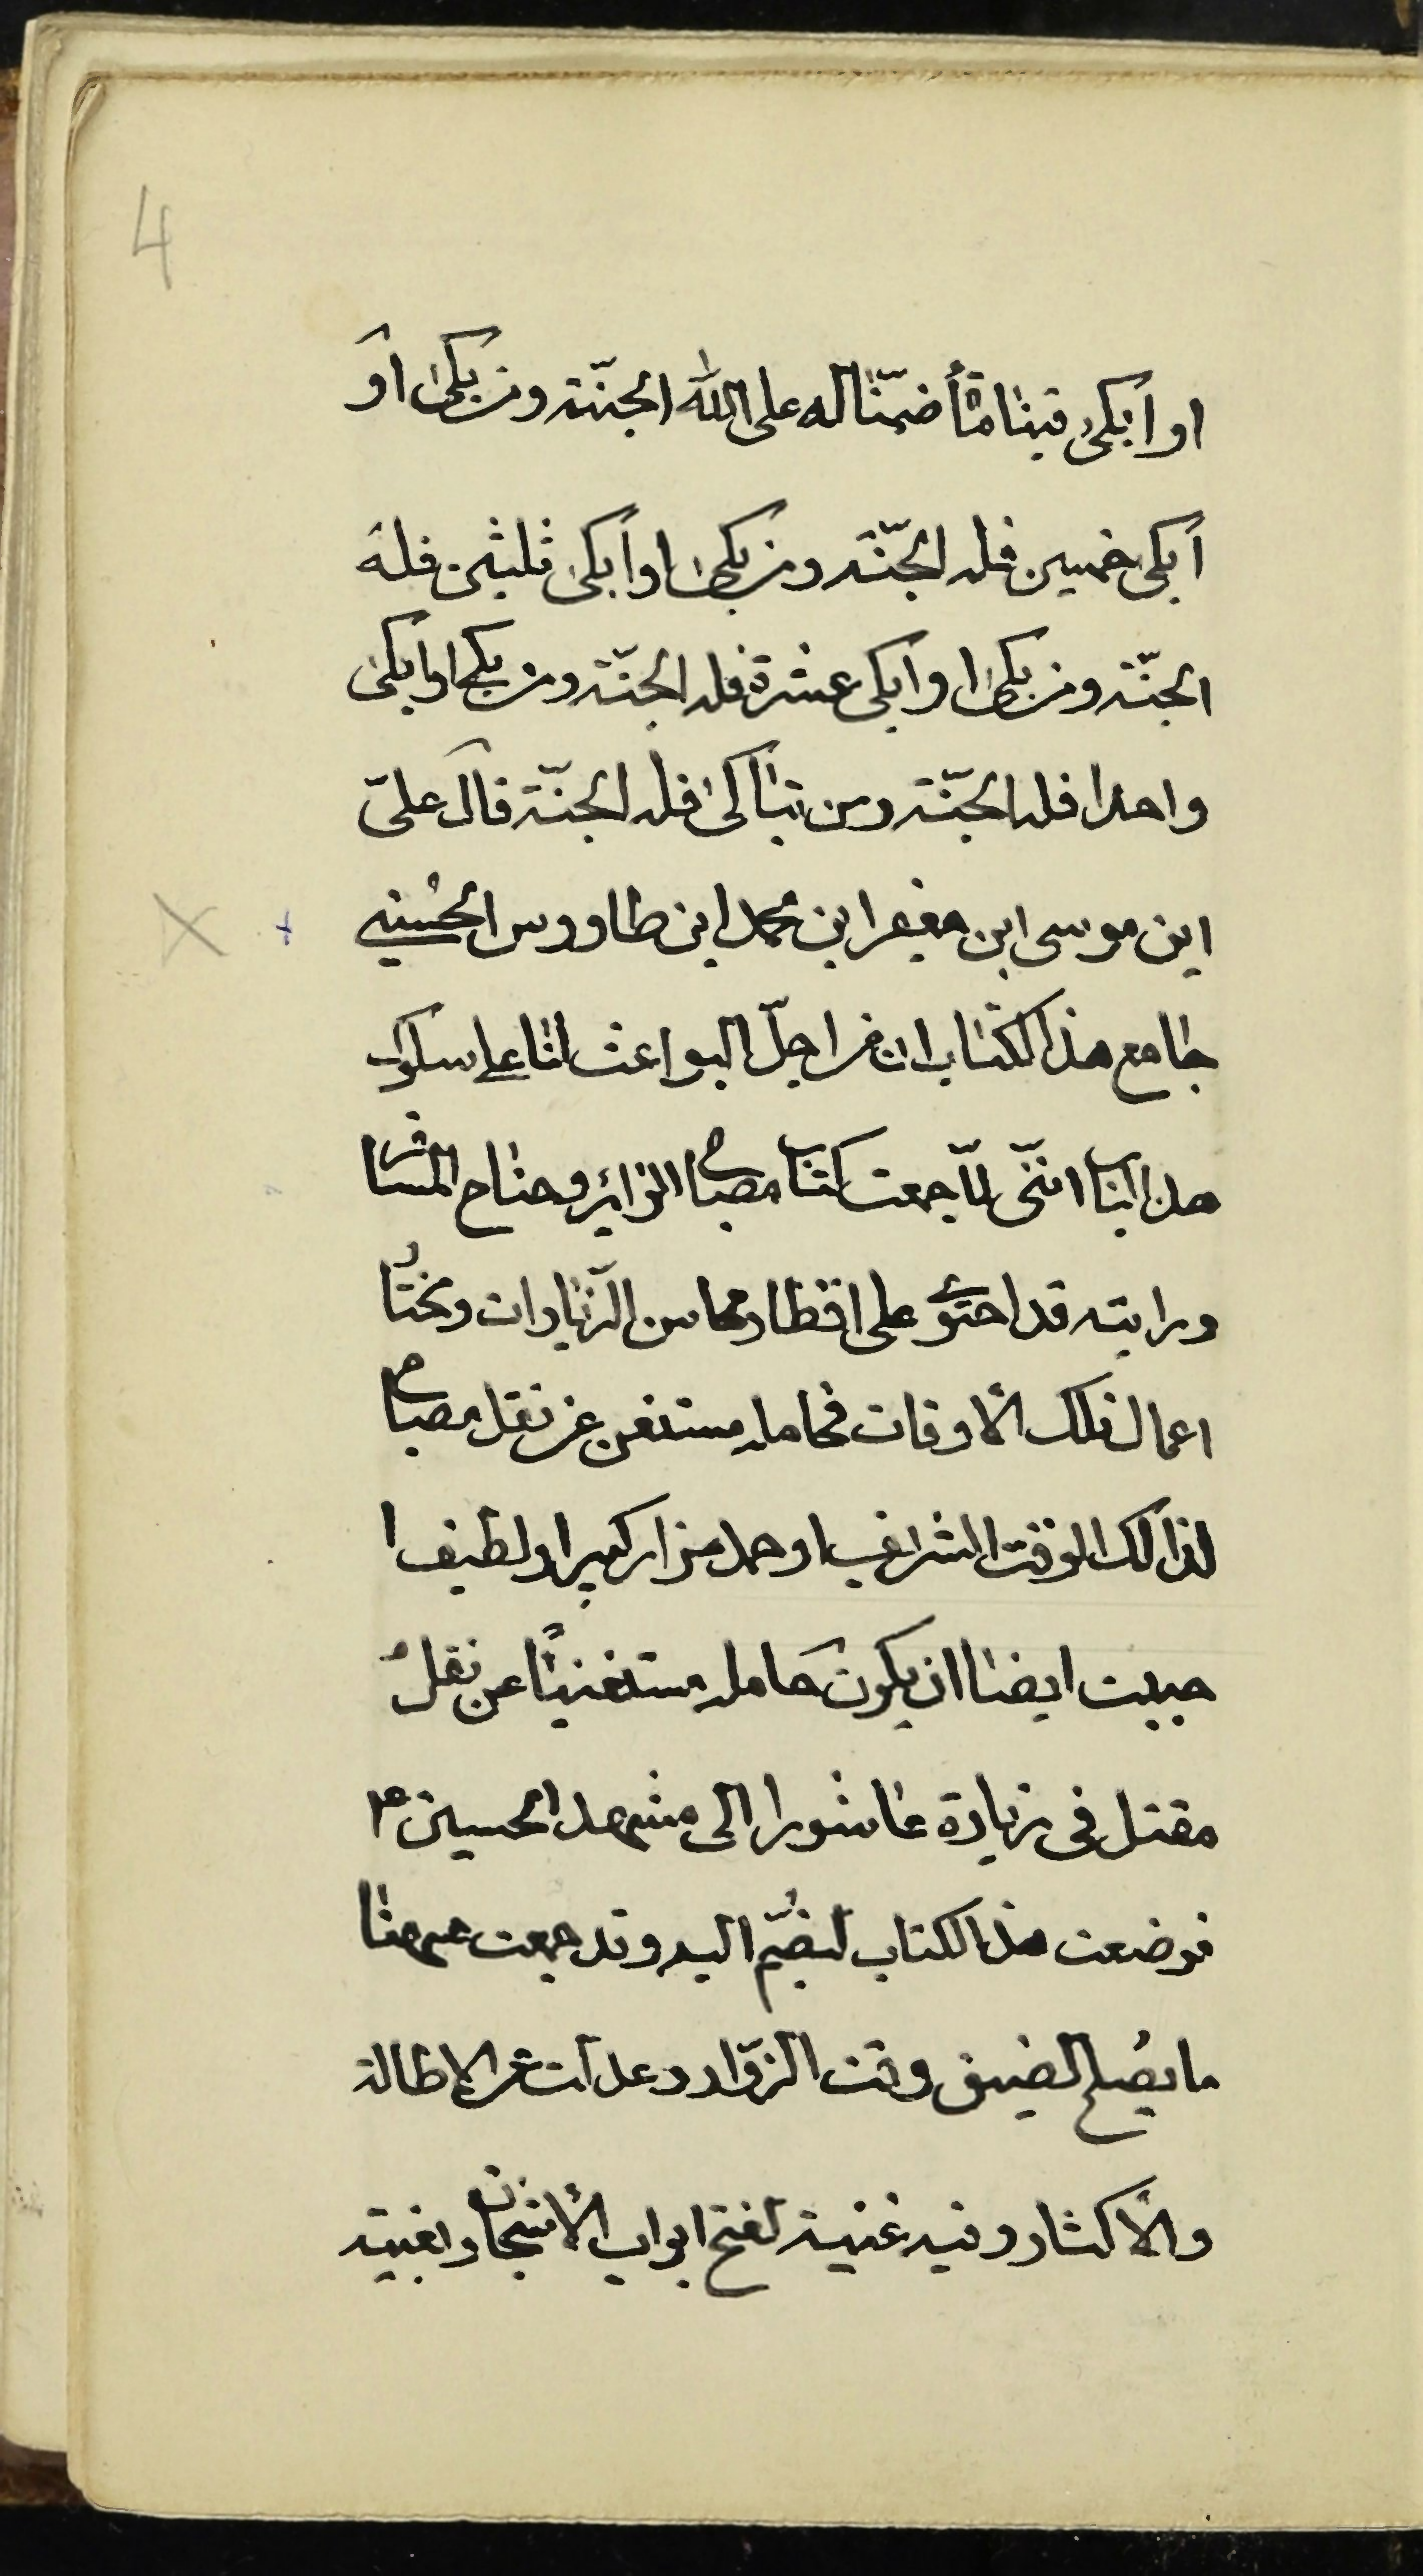 4
او أبكى فينا مأة ضمنّا له على اللّٰه الجنّة ومن بكى او
أبكى خمسين فله الجنّة ومن بكى او أبكى ثلثين فله
الجنّة ومن بكى او ابكى عشرة فله الجنّة ومن بكى او ابكى
واحدا فله الجنّة ومن تباكى فله الجنّة قال علىّ
ابن موسى ابن جعفر ابن محمد ابن طاووس الحسينى
جامع هذا الكتاب ان من اجلّ البواعث لنا على سلوك
هذا الباب اننّى لمّا جمعت كتاب مصباح الزائر وجناح المسافر
ورايته قد احتوى على اقطار محاسن الزّيارات ومختار
اعمال تلك الأوقات فحامله مستغن عن نقل مصباح
لذالك الوقت الشرايف او حمل مزار كبير او لطيف ا
حببت ايضا ان يكون حامله مستغنيًا عن نقل
مقتل فى زيارة عاشورا الى مشهد الحسين ع
فوضعت هذا الكتاب ليضمّ اليه وقد جمعت ههنا
ما يصلح لضيق وقت الزوّار وعدلت عن الإطالة
والأكثار وفيه غنية لفتح ابواب الأشجان وبغية